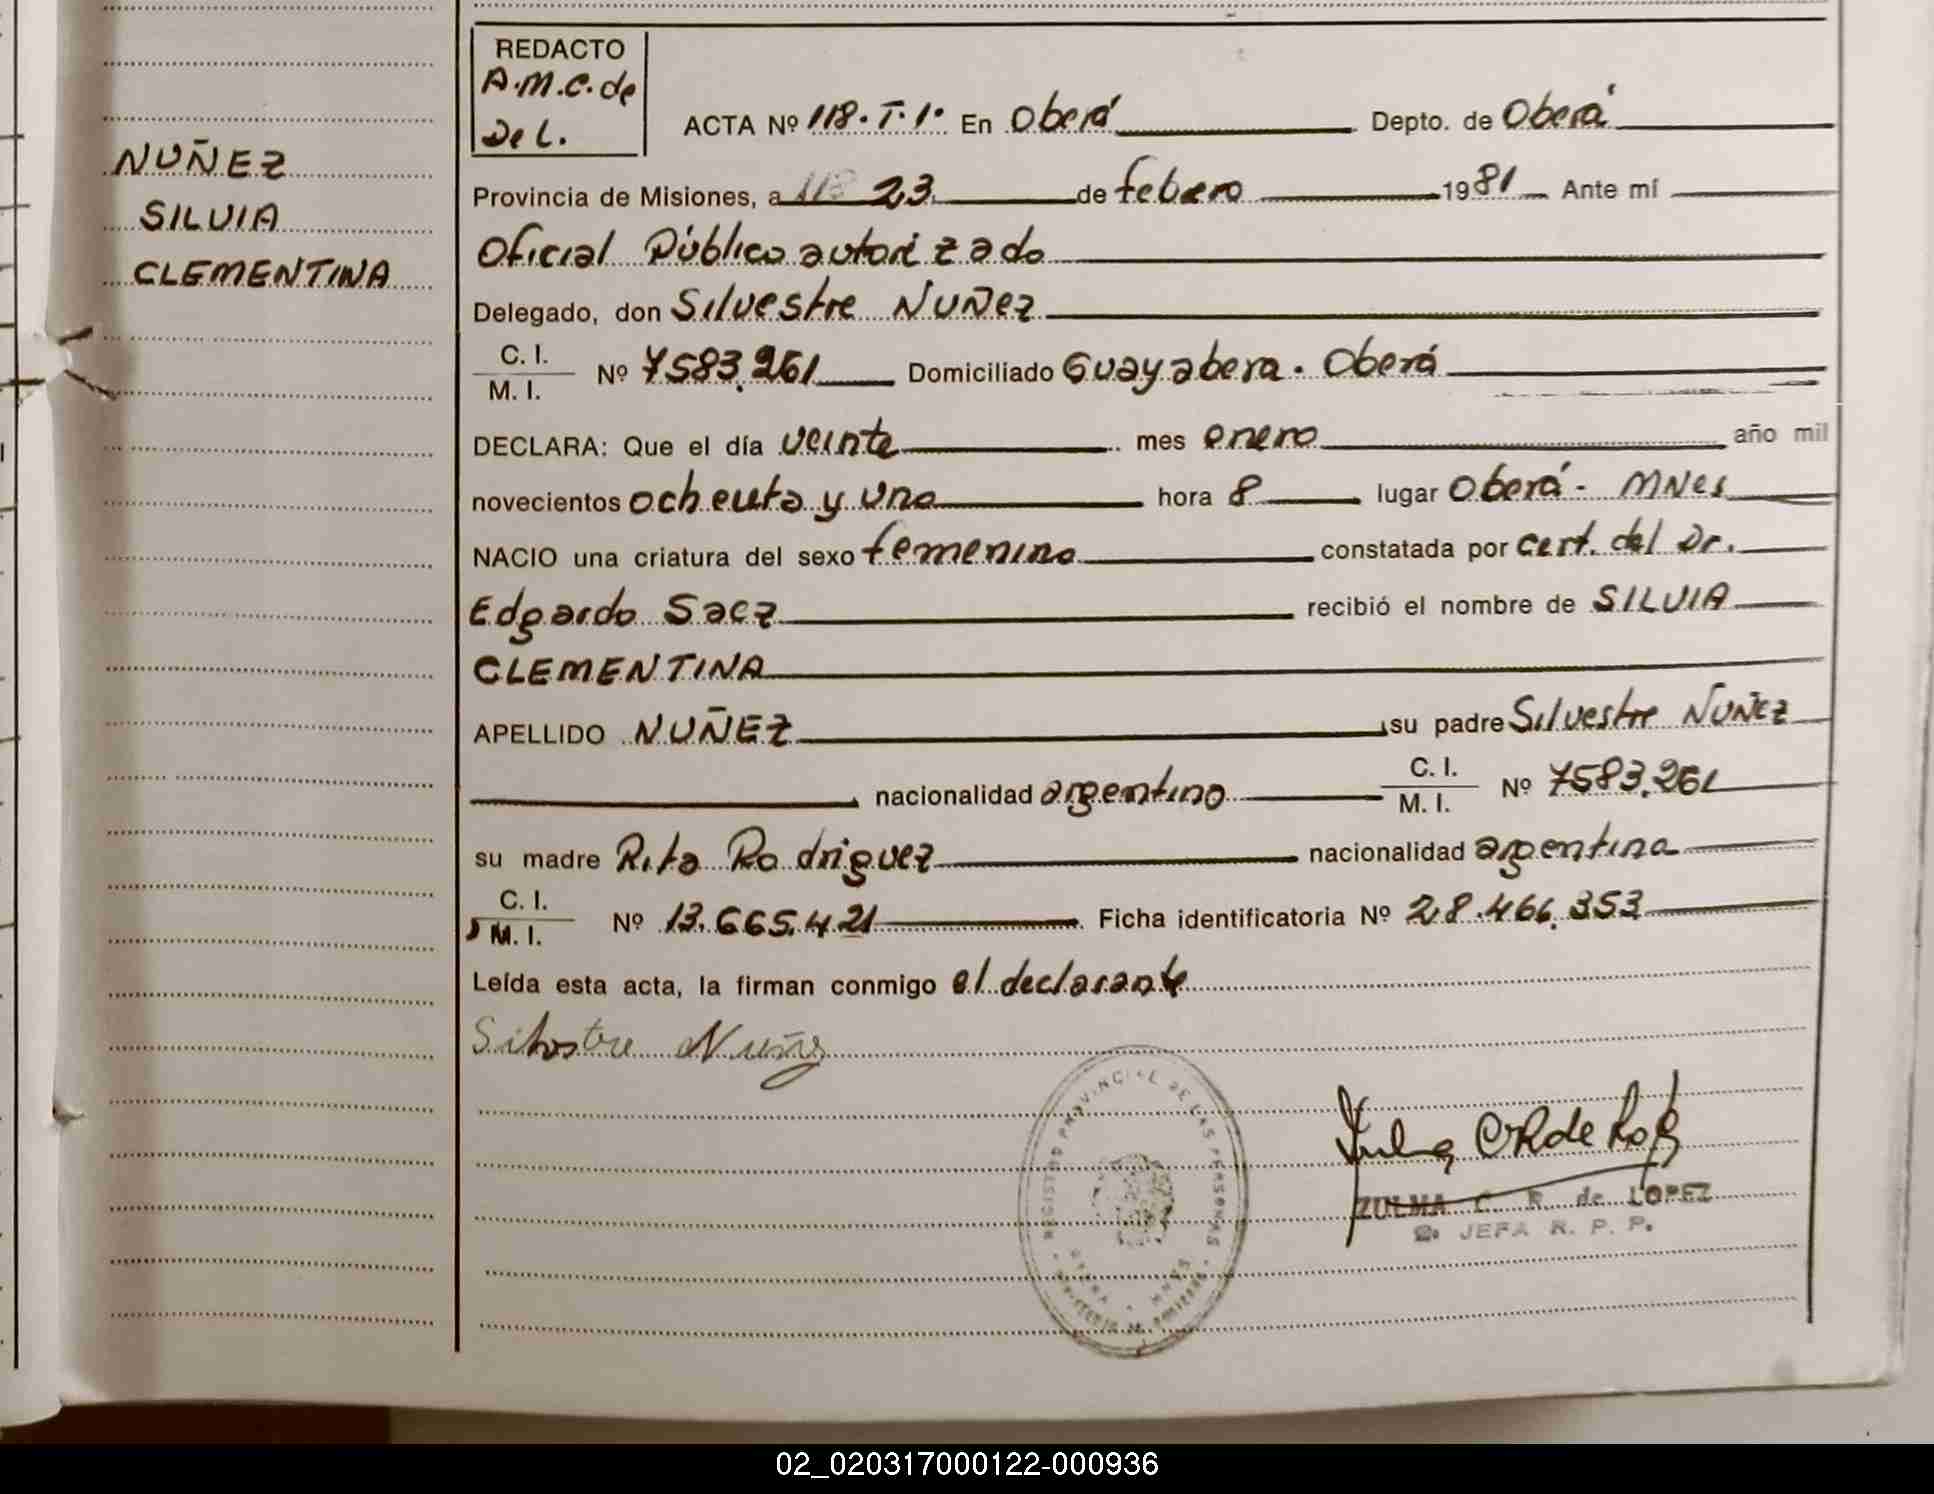 REDACTO
A.M.C. de
De L.
ACTA Nº 118. T. 1. En Oberá Depto. de Oberá
NUÑEZ
SILVIA
CLEMENTINA
Provincia de Misiones, a 118 23 de febero 1981 Ante mí
Oficial Público autorizado
Delegado, don Silvestre NUÑez
C. I.
M. I.
Nº 7583.261 Domiciliado Guayabera. Oberá
DECLARA: Que el día veinte mes enero año mil
novecientos ochenta y uno hora 8 lugar Oberá - MNes
NACIO una criatura del sexo femenino constatada por cert. del Dr.
Edgardo Saez recibió el nombre de SILVIA
CLEMENTINA
APELLIDO NUÑEZ su padre Silvestre NUÑez
nacionalidad argentino C. I. M. I. Nº 7583.261
su madre Rita Rodriguez nacionalidad argentina
C. I.
M. I.
Nº 13.665.421 Ficha identificatoria Nº 28.466.353
Leída esta acta, la firman conmigo el declarante
Silvestre Nuñez
REGISTRO PROVINCIAL DE LAS PERSONAS
OBERA - MNES
ZULMA C. R. de LOPEZ
JEFA R. P. P.
02_020317000122-000936